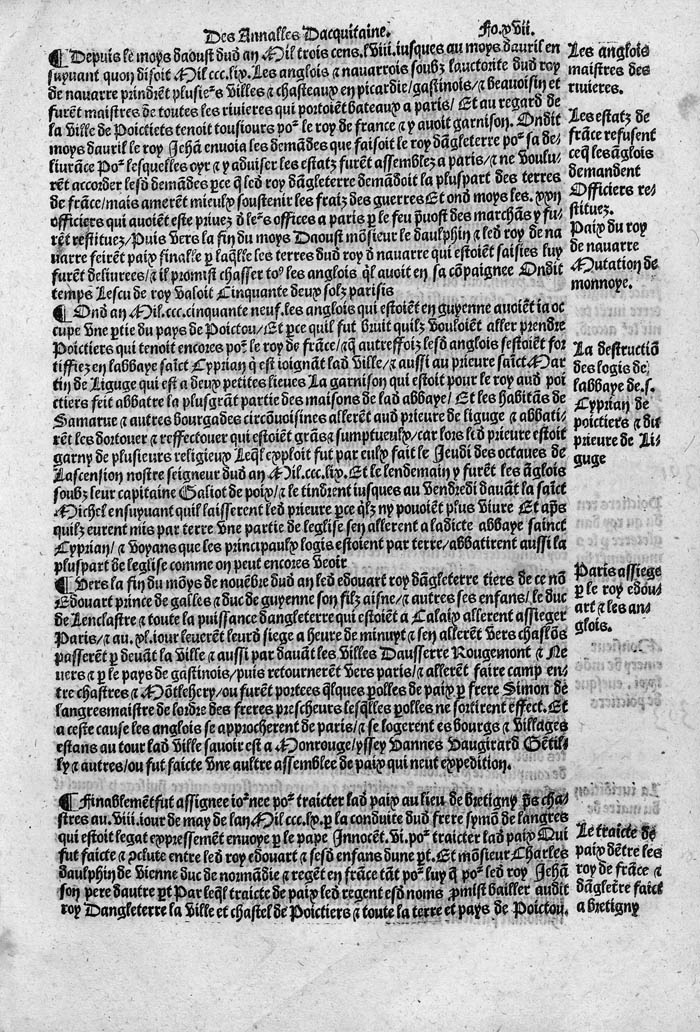 Des Annalles Dacquitaine. Fo.xvii.
¶ Depuis le moys daoust dud an Mil trois cens.lviii.iusques au moys dauril en
suyuant quon disoit Mil ccc.lix.Les anglois ⁊ nauarrois soubz lauctorite dud roy
de nauarre prindrēt plusieᵉs villes ⁊ chasteaux en picardie/gastinois/⁊ beauoisin et
furēt maistres de toutes les riuieres qui portoiēt bateaux a paris/Et au regard de
la ville de Poictiers tenoit tousiours poᵘ le roy de france ⁊ y auoit garnison. Ondit
moys dauril le roy Jehā enuoia les demādes que faisoit le roy dāgleterre poᵘ sa de-
liurāce Poᵘ lesquelles oyr ⁊ y aduiser les estatz furēt assemblez a paris/⁊ ne voulu-
rēt accorder lesd demādes ꝑce q̄ led roy dāgleterre demādoit la pluspart des terres
de frāce/mais amerēt mieulx soustenir les fraiz des guerres Et ond moys les. xxii
officiers qui auoiēt este priuez d̄ leᵉs offices a paris ꝑ le feu p̄uost des marchās y fu-
rēt restituez/Puis vers la fin du moys Daoust mōsieur le daulphin ⁊ led roy de na
uarre feirēt paix finalle ꝑ laq̄lle les terres dud roy d̄ nauarre qui estoiēt saisies luy
furēt deliurees/⁊ il promist chasser toᵘ les anglois q̄l auoit en sa cōpaignee Ondit
temps Lescu de roy valoit Cinquante deux solz parisis
¶ Ond an Mil.ccc.cinquante neuf.les anglois qui estoiēt en guyenne auoiēt ia oc
cupe vne ꝑtie du pays de Poictou/Et ꝑce quil fut bruit quilz vouloiēt aller prendre
Poictiers qui tenoit encores poᵘ le roy de frāce/⁊ q̄ autreffoiz lesd anglois sestoiēt for
tiffiez en labbaye saīct Cyprian q̄ est ioignāt lad ville/⁊ aussi au prieure saīct Mar
tin de Liguge qui est a deux petites lieues La garnison qui estoit pour le roy aud poi
ctiers feit abbatre la plusgrāt partie des maisons de lad abbaye/ Et les habitās de
Samarue ⁊ autres bourgades circōuoisines allerēt aud prieure de liguge ⁊ abbati-
rēt les dortouer ⁊ reffectouer qui estoiēt grās ⁊ sumptueulx/car lors led prieure estoit
garny de plusieurs religieux Leq̄l exploit fut par eulx fait le Jeudi des octaues de
Lascension nostre seigneur dud an Mil.ccc.lix. Et le lendemain y furēt les āglois
soubz leur capitaine Galiot de poix/⁊ le tindrent iusques au vendredi dauāt la saīct
Michel ensuyuant quil laisserent led prieure ꝑce q̄lz ny pouoiēt plus viure Et ap̄s
quilz eurent mis par terre vne partie de leglise sen allerent a ladicte abbaye sainct
Cyprian/ ⁊ voyans que les principaulx logis estoient par terre/abbatirent aussi la
pluspart de leglise comme on peut encores veoir
¶ Vers la fin du moys de nouēbre dud an led edouart roy dāgleterre tiers de ce nō
Edouart prince de galles ⁊ duc de guyenne son filz aisne/⁊ autres ses enfans/le duc
de Lenclastre ⁊ toute la puissance dangleterre qui estoiēt a Calaix allerent assieger
Paris/⁊ au. xl.iour leuerēt leurd siege a heure de minuyt ⁊ sen allerēt vers chaslōs
passerēt ꝑ deuāt la ville ⁊ aussi par dauāt les villes Dausserre Rougemont ⁊ Ne
uers ⁊ ꝑ le pays de gastinois/puis retournerēt vers paris/⁊ allerēt faire camp en-
tre chastres ⁊ Mōtlehery/ou furēt portees q̄lques ꝑolles de paix ꝑ frere Simon de
langresmaistre de lordre des freres prescheurs lesq̄lles ꝑolles ne sortirent effect. Et
a ceste cause les anglois se approcherent de paris/⁊ se logerent es bourgs ⁊ villages
estans au tour lad ville sauoir est a Monrouge/yssey Vannes Vaugirard Gētil-
ly ⁊ autres/ou fut faicte vne aultre assemblee de paix qui neut expedition.
¶ Finablemēt fut assignee ioᵘnee poᵘ traicter lad paix au lieu de bretigny p̄s cha-
stres au.viii.iour de may de lan Mil ccc.lx.ꝑ la conduite dud frere symō de langres
qui estoit legat expressemēt enuoye ꝑ le pape Innocēt.vi.poᵘ traicter lad paix Qui
fut faicte ⁊ ɔclute entre led roy edouart ⁊ sesd enfans dune ꝑt. Et mōsieur Charles
daulphin de vienne duc de normādie ⁊ regēt en frāce tāt poᵘ luy q̄ poᵘ led roy Jehā
son pere dautre ꝑt Par leq̄l traicte de paix led regent esd noms ꝓmist bailler audit
roy Dangleterre la ville et chastel de Poictiers ⁊ toute la terre et pays de Poictou.
Les anglois
maistres des
riuieres.
Les estatz de
frāce refusent
ceq̄ les āglois
demandent
Officiers re-
stituez.
Paix du roy
de nauarre
Mutation de
monnoye.
La destructiō
des logis de
labbaye de.s.
Cyprian de
poictiers ⁊ du
prieure de Li-
guge
Paris assiege
ꝑ le roy edou-
art ⁊ les an-
glois.
Le traicte de
paix dētre les
roy de frāce ⁊
dāgleᵗre faict
a bretigny